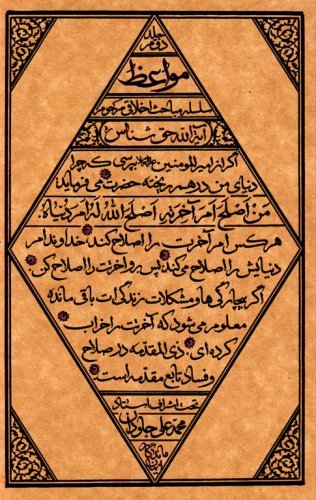 جلد
دوم
مواعظ
سلسله مباحث اخلاقی مرحوم
آیة الله حق شناس
اگر از امیرالمومنین بپرسی که چرا
دنیای من درهم ریخته حضرت می فرماید:
مَنْ اَصْلَحَ اَمْرَ آخِرَتِهِ اَصْلَحَ اللهُ لَهُ اَمْرَ دُنْیاهُ.
هر کس امر آخرت را اصلاح کند، خداوند امر
دنیایش را اصلاح می کند پس برو آخرتت را اصلاح کن.
اگر بیچارگی ها و مشکلات زندگی ات باقی مانده
معلوم می شود که آخرتت را خراب
کرده ای. ذی المقدمه در صلاح
و فساد تابع مقدمه است.
تحت اشراف استاد
محمد علی جاودان